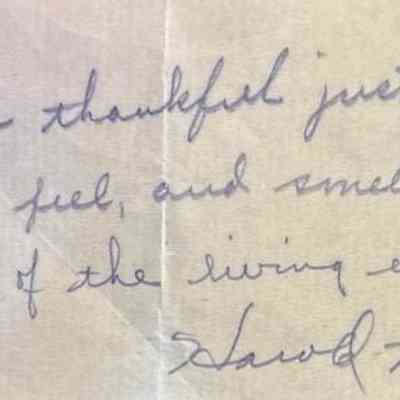 thankful just
feel, and smel
of the living e
Harold